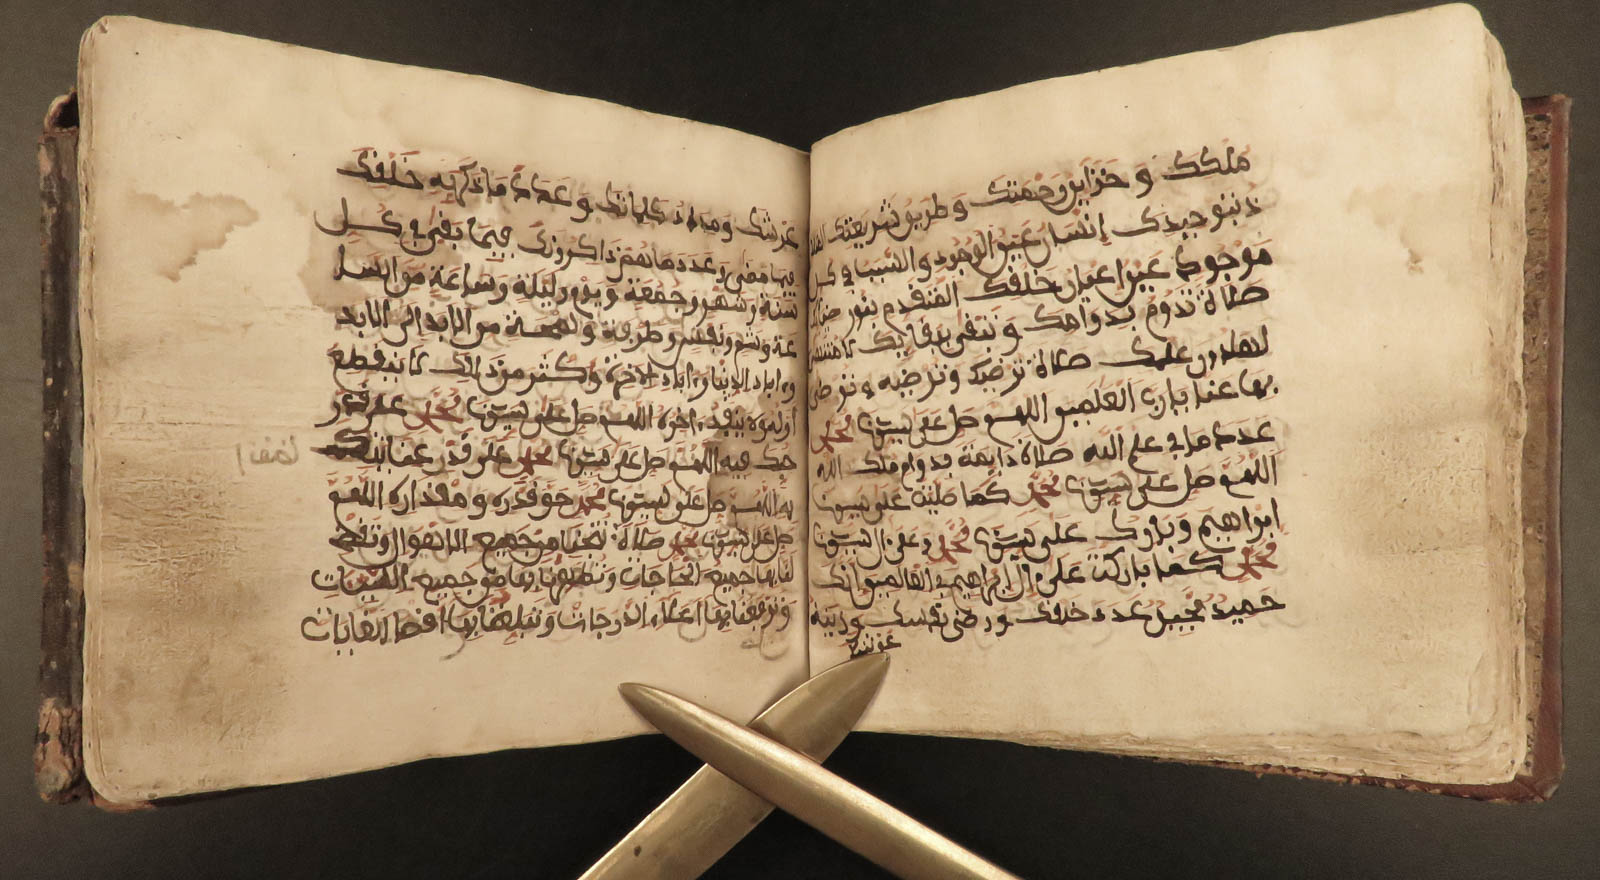 ملكك و خزاين رحمتك وطريق شريعتك المتلذ
ذ بتوحيدك إنسان عين الوجود و السبب في كل
موجود عين اعيان خلقك المتقدم من نور ضيائك
صلاة تدوم بدوامك وتبقى ببقايك لا منتهى
لها دون علمك صلاة ترضيك وترضيه وترضى
بها عنا يارب العلمين اللهم صل على سيدنا محمد
عدد ما في علم الله صلاة دايمة بدوام ملك الله
اللهم صل على سيدنا محمد كما صليت على سيدنا
ابراهيم وبارك على سيدنا محمد وعلى ال سيدنا
محمد كما باركت على ال ابراهيم في العالمين إنك
حميد مجيد عدد خلقك ورضى نفسك وزنة
عرشك
عرشك ومداد كلماتك وعدد ما ذكرك به خلقك
فيما مضى وعدد ما هم ذاكرونك فيما بقي في كل
سنة وشهر وجمعة ويوم وليلة وساعة من السا
عة وشم ونفس وطرفة ولمحة من الابد الى الابد
وءاباد الدنيا وءاباد الاخرة وأكثر من ذالك لا ينقطع
أوله ولا ينفد ءاخره اللهم صل على سيدنا محمد على قدر
حبك فيه اللهم صل على سيدنا محمد على قدر عنايتك
به اللهم صل على سيدنا محمد حق قدره ومقداره اللهم
صل على سيدنا محمد صلاة تنجينا من جميع الاهوال وتقضى
لنا بها جميع الحاجات وتطهرنا بها من جميع السيئات
وترفعنا بها اعلاء الدرجات وتبلغنا بها اقصا الغايات